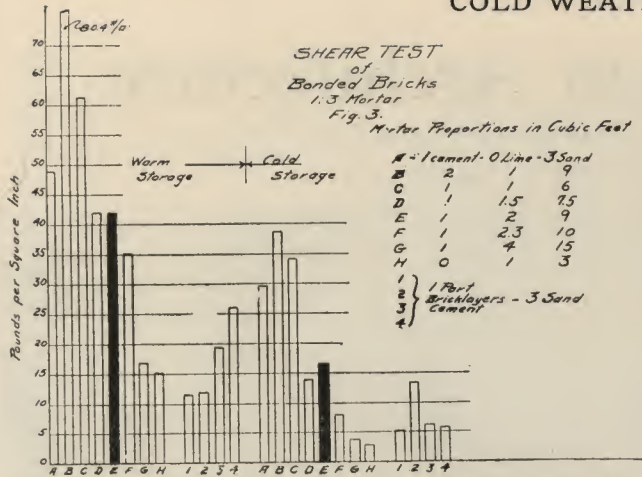 COLD WEAT
80.4#/□"
SHEAR TEST
of
Bonded Bricks
1:3 Mortar
Fig. 3.
Mortar Proportions in Cubic Feet
A - 1 cement - 0 Lime - 3 Sand
B 2 1 9
C 1 1 6
D 1 1.5 7.5
E 1 2 9
F 1 2.3 10
G 1 4 15
H 0 1 3
1
2
3
4
1 Part
Bricklayers - 3 Sand
Cement
Warm
Storage
Cold
Storage
Pounds per Square Inch
70
65
60
55
50
45
40
35
30
25
20
15
10
5
0
A B C D E F G H 1 2 3 4 A B C D E F G H 1 2 3 4